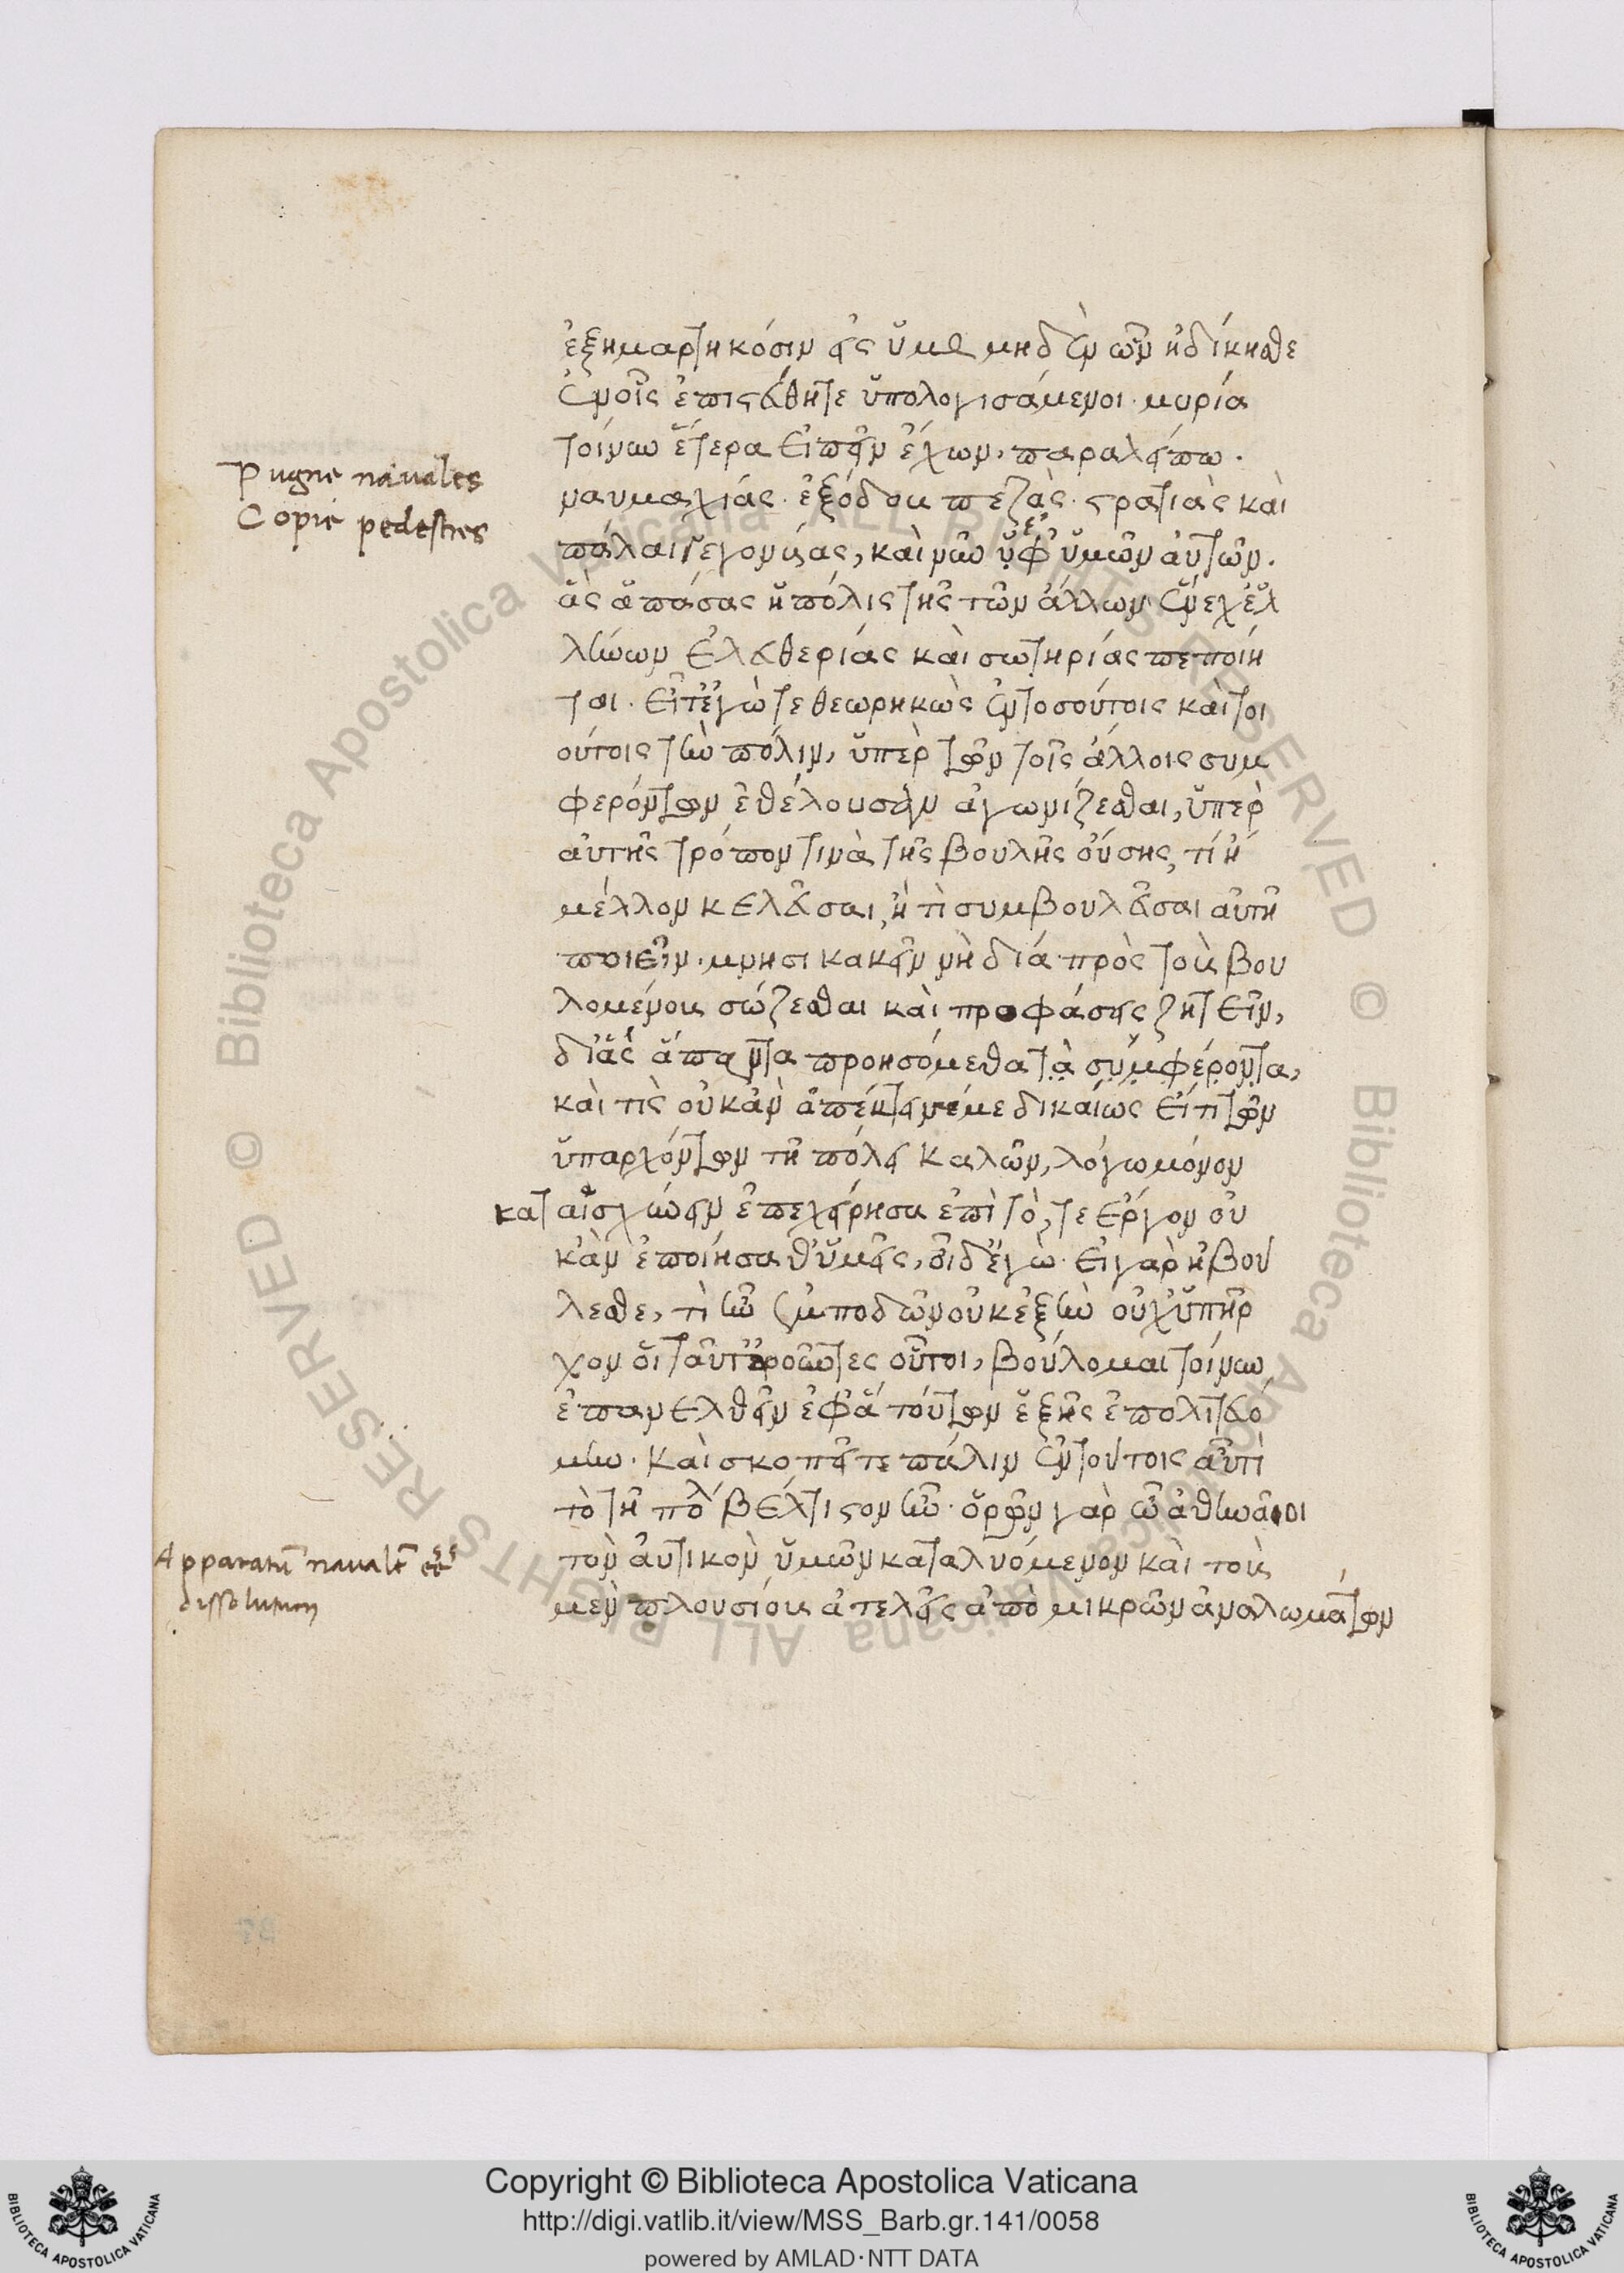 Pugne nauales
Copie pedestres
ἐξημαρτηκόσιν εἰς ὑμᾶς μηδὲν ὧν ἠδίκησθε
ἐν οἷς ἐπιστεύθητε ὑπολογισάμενοι. μυρία
τοίνυν ἕτερα εἰπεῖν ἔχων, παραλείπω.
ναυμαχίας. ἐξόδους πεζὰς. στρατιὰς καὶ
πάλαι γεγονυίας, καὶ νῦν ὑφ ὑμῶν αὐτῶν.
ἃς ἁπάσας ἡ πόλις τῆς τῶν ἄλλων ἕνεχ ἑλ
λήνων ἐλευθερίας καὶ σωτηρίας πεποίη
ται. εἶτ' ἐγὼ τεθεωρηκὼς ἐν τοσούτοις καὶ τοι
ούτοις τὴν πόλιν, ὑπὲρ τῶν τοῖς ἄλλοις συμ
φερόντων ἐθέλουσαν ἀγωνίζεσθαι, ὑπὲρ
αὐτῆς τρόπον τινὰ τῆς βουλῆς οὔσης, τί ἤ
μελλον κελεύσαι, ἢ τὶ συμβουλεύσαι αὐτῆ
ποιεῖν. μνησικακεῖν νὴ δία πρὸς τοὺς βου
λομένους σώζεσθαι καὶ προφάσεις ζητεῖν,
δι' ἃς ἅπαντα προησόμεθα τὰ συμφέροντα,
καὶ τὶς οὐκ ἂν ἀπέκτεινέ με δικαίως εἴ τι τῶν
ὑπαρχόντων τῆ πόλει καλῶν, λόγω μόνον
καταισχύνειν ἐπεχείρησα ἐπὶ τό, τε ἔργον οὐ
κ ἂν ἐποίησαθ' ὑμεῖς, οἶδ' ἐγὼ. εἰ γὰρ ἠβού
λεσθε, τὶ ἦν ἐμποδὼν οὐκ ἐξῆν οὐχ ὑπῆρ
χον οἱ ταῦτ' ἐροῦντες οὗτοι, βούλομαι τοίνυν
ἐπανελθεῖν ἐφ' ἃ τούτων ἑξῆς ἐπολιτευό
μην. καὶ σκοπεῖτε πάλιν ἐν τούτοις αὖ τὶ
τὸ τῆ πόλ βέλτιστον ἦν. ὁρῶν γὰρ ὦ ἀθηναῖοι
τὸν ἀυτικὸν ὑμῶν καταλυόμενον καὶ τοὺς
μὲν πλουσίους ἀτελεῖς ἀπὸ μικρῶν ἀναλωμάτων
Apparatū naualē eē
dissolutum
Copyright © Biblioteca Apostolica Vaticana
http://digi.vatlib.it/view/MSS_Barb.gr.141/0058
powered by AMLAD·NTT DATA